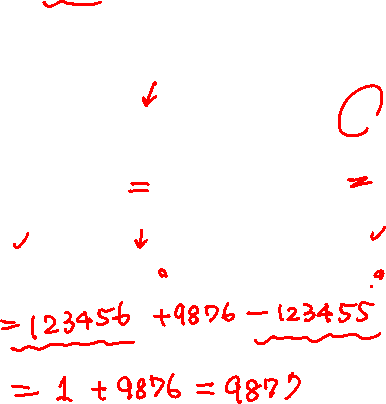 =
=
= 123456 + 9876 - 123455
= 1 + 9876 = 9877